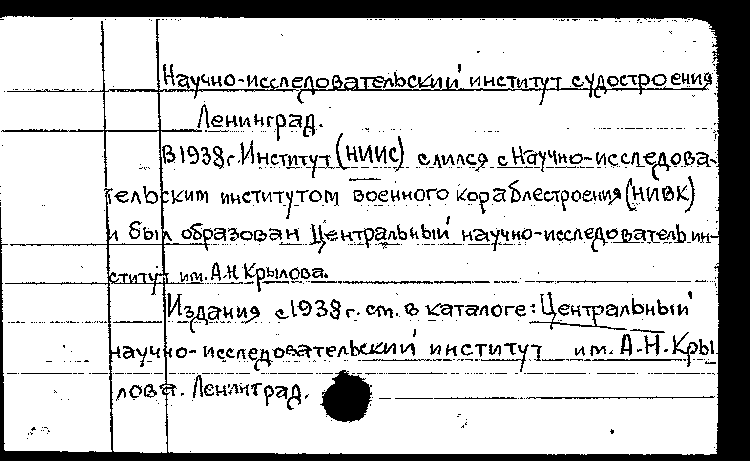 Научно-исследовательский институт судостроения
Ленинград.
В 1938 г. Институт (НИИС) слился с Научно-исследова-
тельским институтом военного кораблестроения (НИВК)
и был образован Центральный научно-исследовательин-
ститут им. А.Н Крылова.
Издания с 1938 г. см. в каталоге: Центральный
научно-исследовательский институт им. А.Н. Кры
лова. Ленинград.